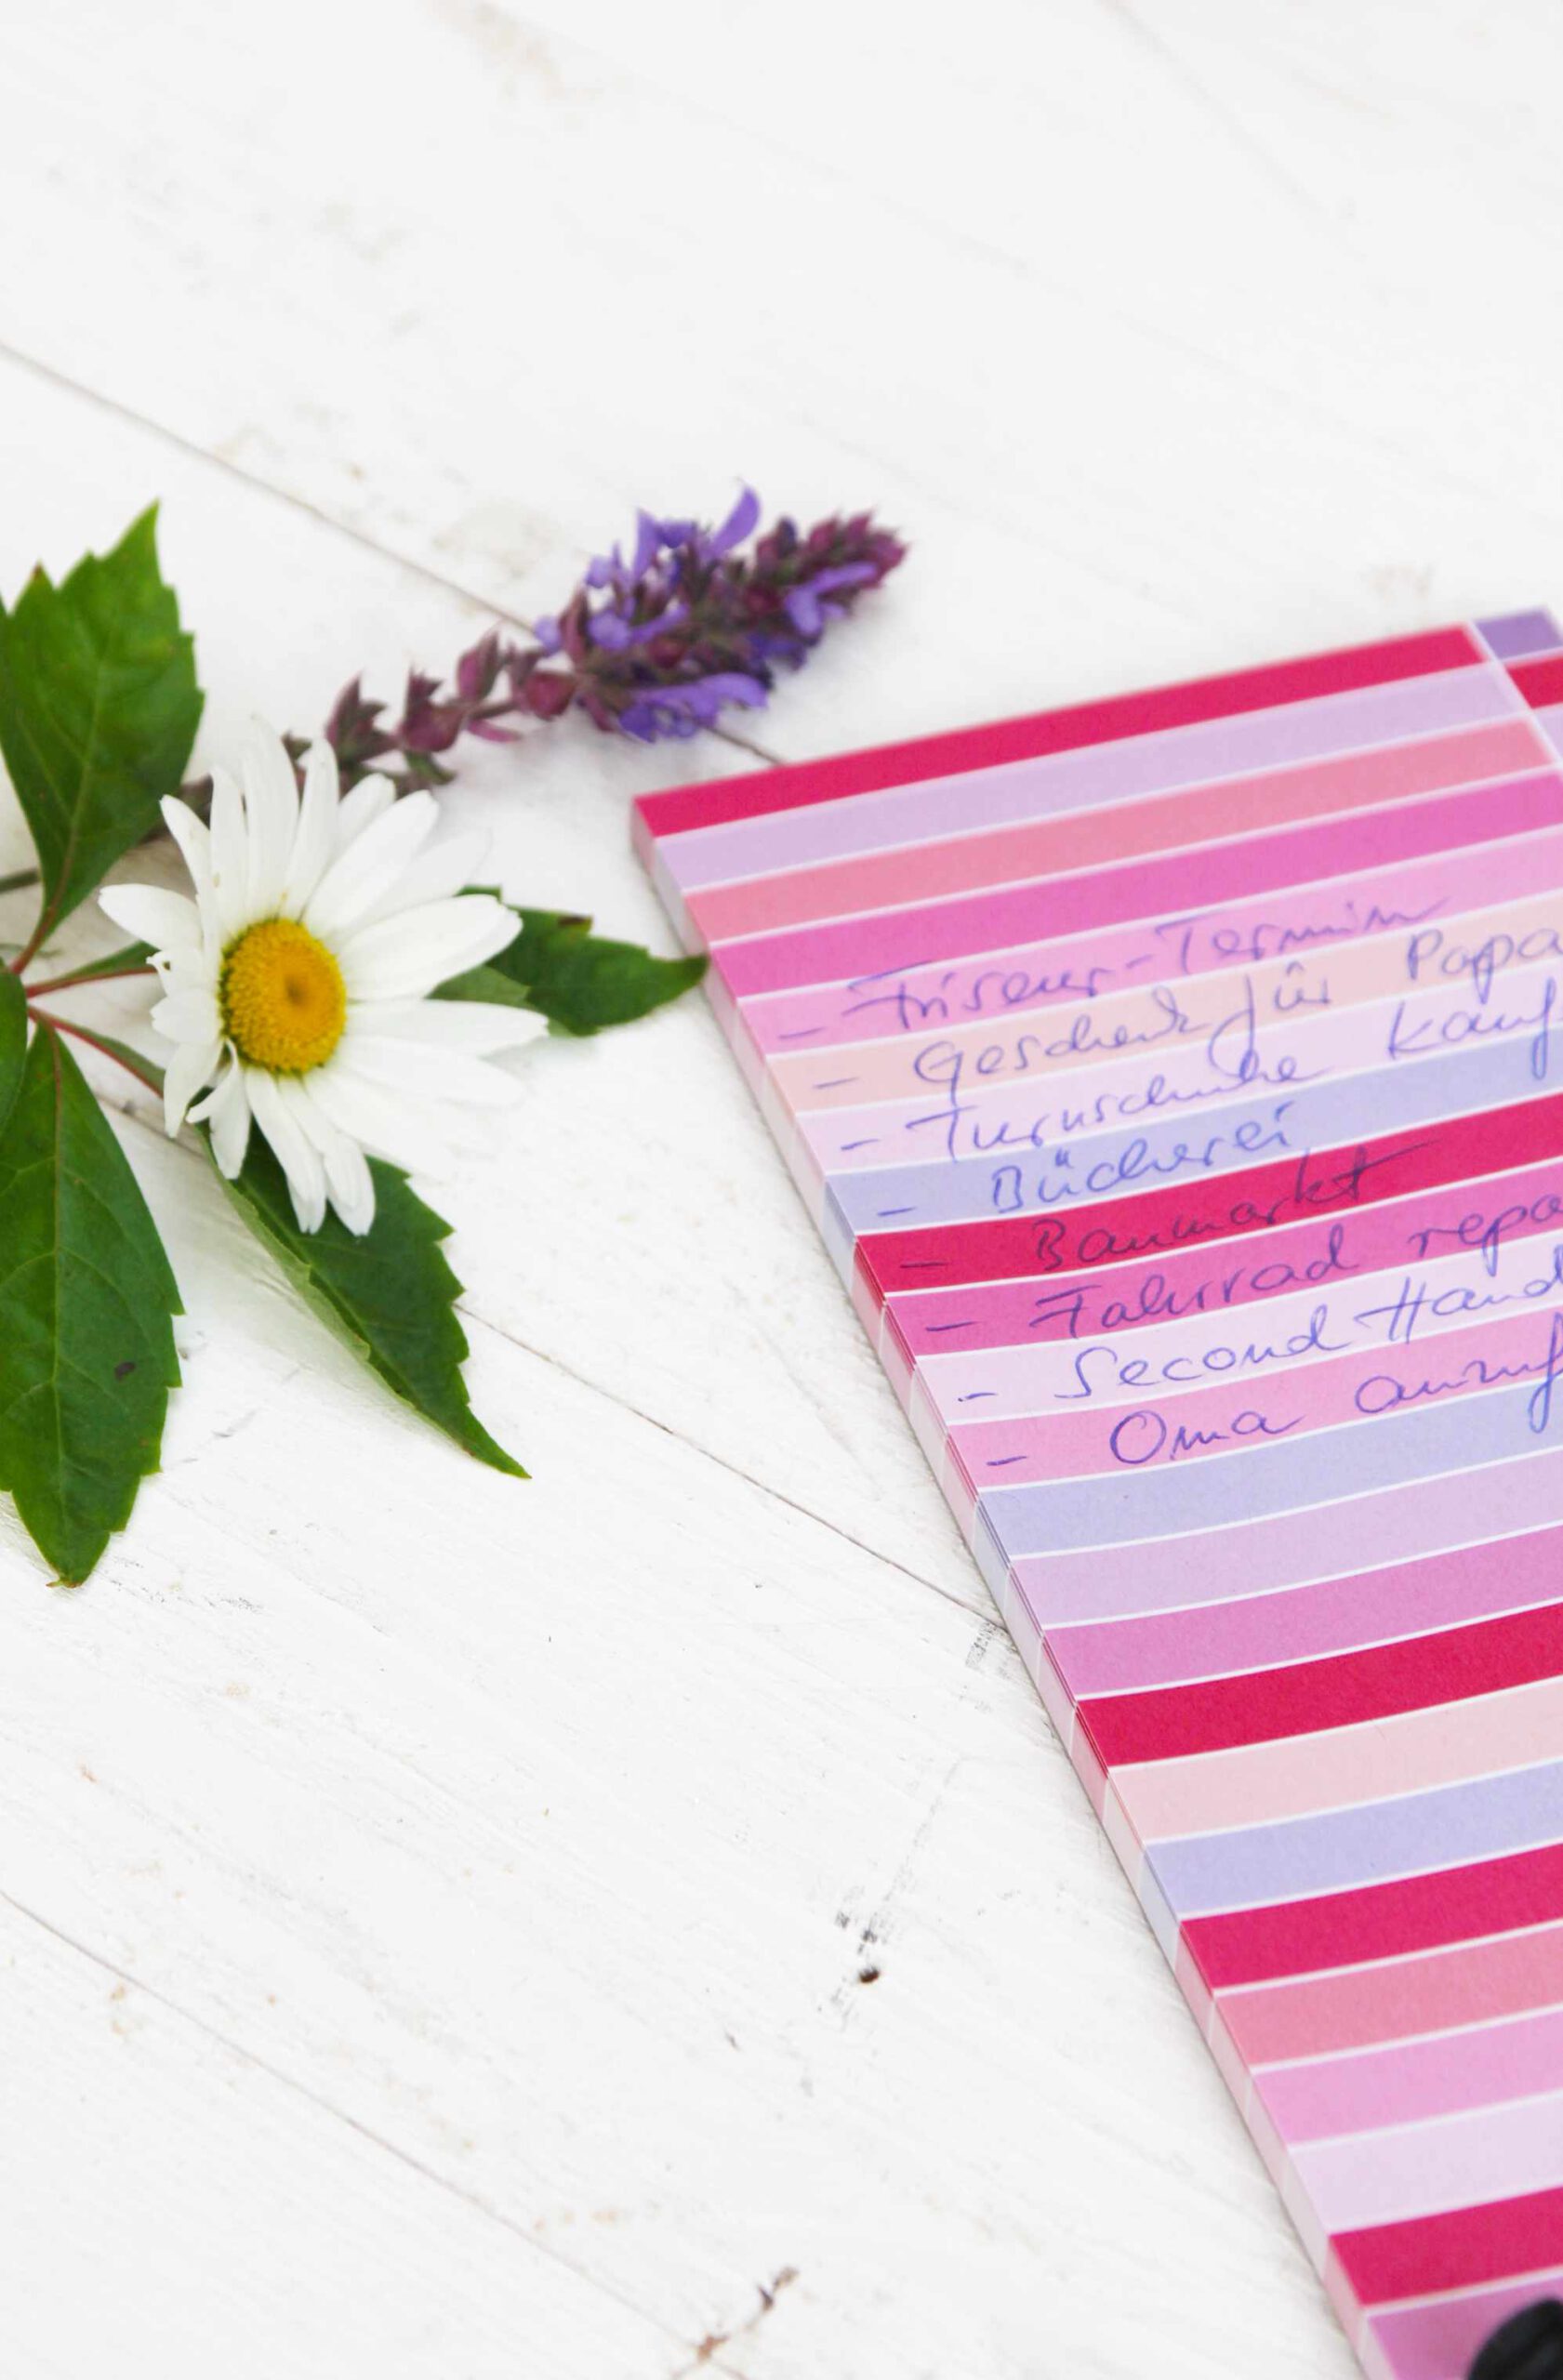 - Friseur-Termin
- Geschenk für Papa
- Turnschuhe kauf
- Bücherei
- Baumarkt
- Fahrrad repa
- Second Hand
- Oma anruf